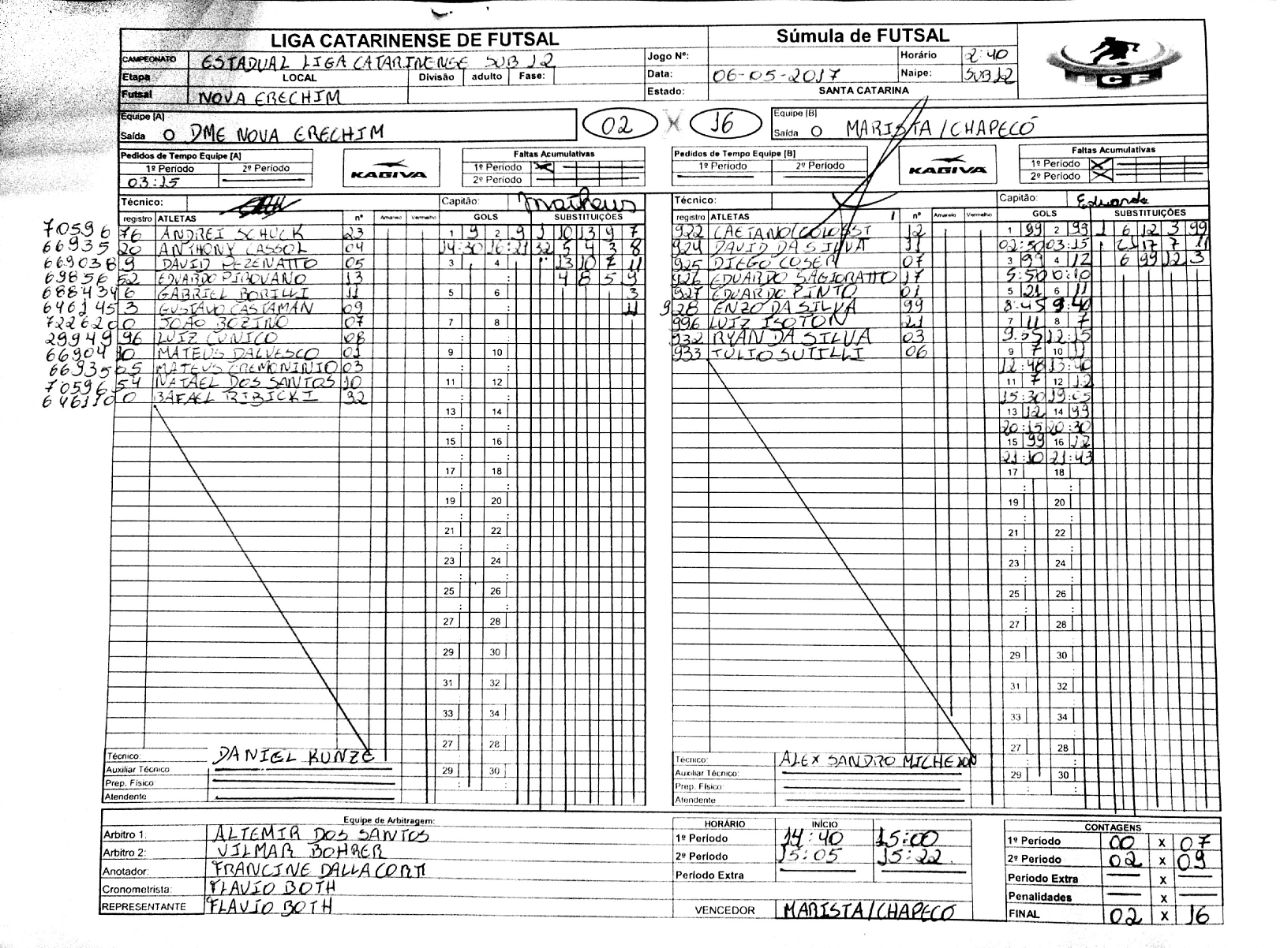 LIGA CATARINENSE DE FUTSAL
Súmula de FUTSAL
CAMPEONATO ESTADUAL LIGA CATARINENSE SUB 12
Jogo Nº: Horário 2:40
Etapa LOCAL Divisão adulto Fase:
Data: 06-05-2017 Naipe: SUB 12
Futsal NOVA ERECHIM
Estado: SANTA CATARINA
LCF
Equipe [A]
Saída O DME NOVA ERECHIM
02 X 16
Equipe [B]
Saída O MARISTA/CHAPECÓ
Pedidos de Tempo Equipe [A]
1º Periodo 2º Periodo
03:15
KAGIVA
Faltas Acumulativas
1º Periodo
2º Periodo
Pedidos de Tempo Equipe [B]
1º Periodo 2º Periodo
KAGIVA
Faltas Acumulativas
1º Periodo
2º Periodo
Técnico: Capitão: Matheus
registro ATLETAS nº Amarelo Vermelho GOLS SUBSTITUIÇÕES
7059676 ANDREI SCHUCK 23
6693520 ANTHONY CASSOL 04
6690389 DAVID PEZENATTO 05
6985652 EDUARDO PIROVANO 13
6884346 GABRIEL BORILLI 11
6461453 GUSTAVO CASTAMAN 09
7226200 JOÃO BOZINO 07
2994996 LUIZ CUNICO 08
6690410 MATEUS DALVESCO 01
6693505 MATEUS CREMONINIO 03
7059654 NATAEL DOS SANTOS 10
6461100 RAFAEL RIBICKI 32
1 9 2 9
14:30 16:21
3 4
5 6
7 8
9 10
11 12
13 14
15 16
17 18
19 20
21 22
23 24
25 26
27 28
29 30
31 32
33 34
27 28
29 30
1 10 13 9 7
32 5 4 3 8
13 10 7 11
4 8 5 9
3
11
Técnico: DANIEL KUNZE
Auxiliar Técnico
Prep. Físico
Atendente
Técnico: Capitão: Eduardo
registro ATLETAS nº Amarelo Vermelho GOLS SUBSTITUIÇÕES
922 CAETANO 12
924 DAVID DA SILVA 11
925 DIEGO COSER 07
926 EDUARDO SAGIORATTO 17
927 EDUARDO PINTO 01
928 ENZO DA SILVA 99
996 LUIZ ISOTON 21
932 RYAN DA SILVA 03
933 TULIO SUTILLI 06
1 99 2 99
02:50 03:15
3 99 4 12
5:50 0:10
5 21 6 11
8:45 9:40
7 11 8 7
9:55 12:15
9 7 10 11
12:48 13:40
11 7 12 12
15:30 19:05
13 12 14 99
20:15 20:30
15 99 16 12
21:10 21:43
17 18
19 20
21 22
23 24
25 26
27 28
29 30
31 32
33 34
27 28
29 30
1 6 12 3 99
21 17 7 11
6 99 12 3
Técnico: ALEX SANDRO MICHELON
Auxiliar Técnico:
Prep. Físico:
Atendente
Equipe de Arbitragem:
Arbitro 1: ALTEMIR DOS SANTOS
Arbitro 2: VILMAR BOHRER
Anotador: FRANCINE DALLACORT
Cronometrista: FLAVIO BOTH
REPRESENTANTE FLAVIO BOTH
HORÁRIO INÍCIO
1º Periodo 14:40 15:00
2º Periodo 15:05 15:22
Periodo Extra
VENCEDOR MARISTA/CHAPECÓ
CONTAGENS
1º Periodo 00 x 07
2º Periodo 02 x 09
Periodo Extra x
Penalidades x
FINAL 02 x 16